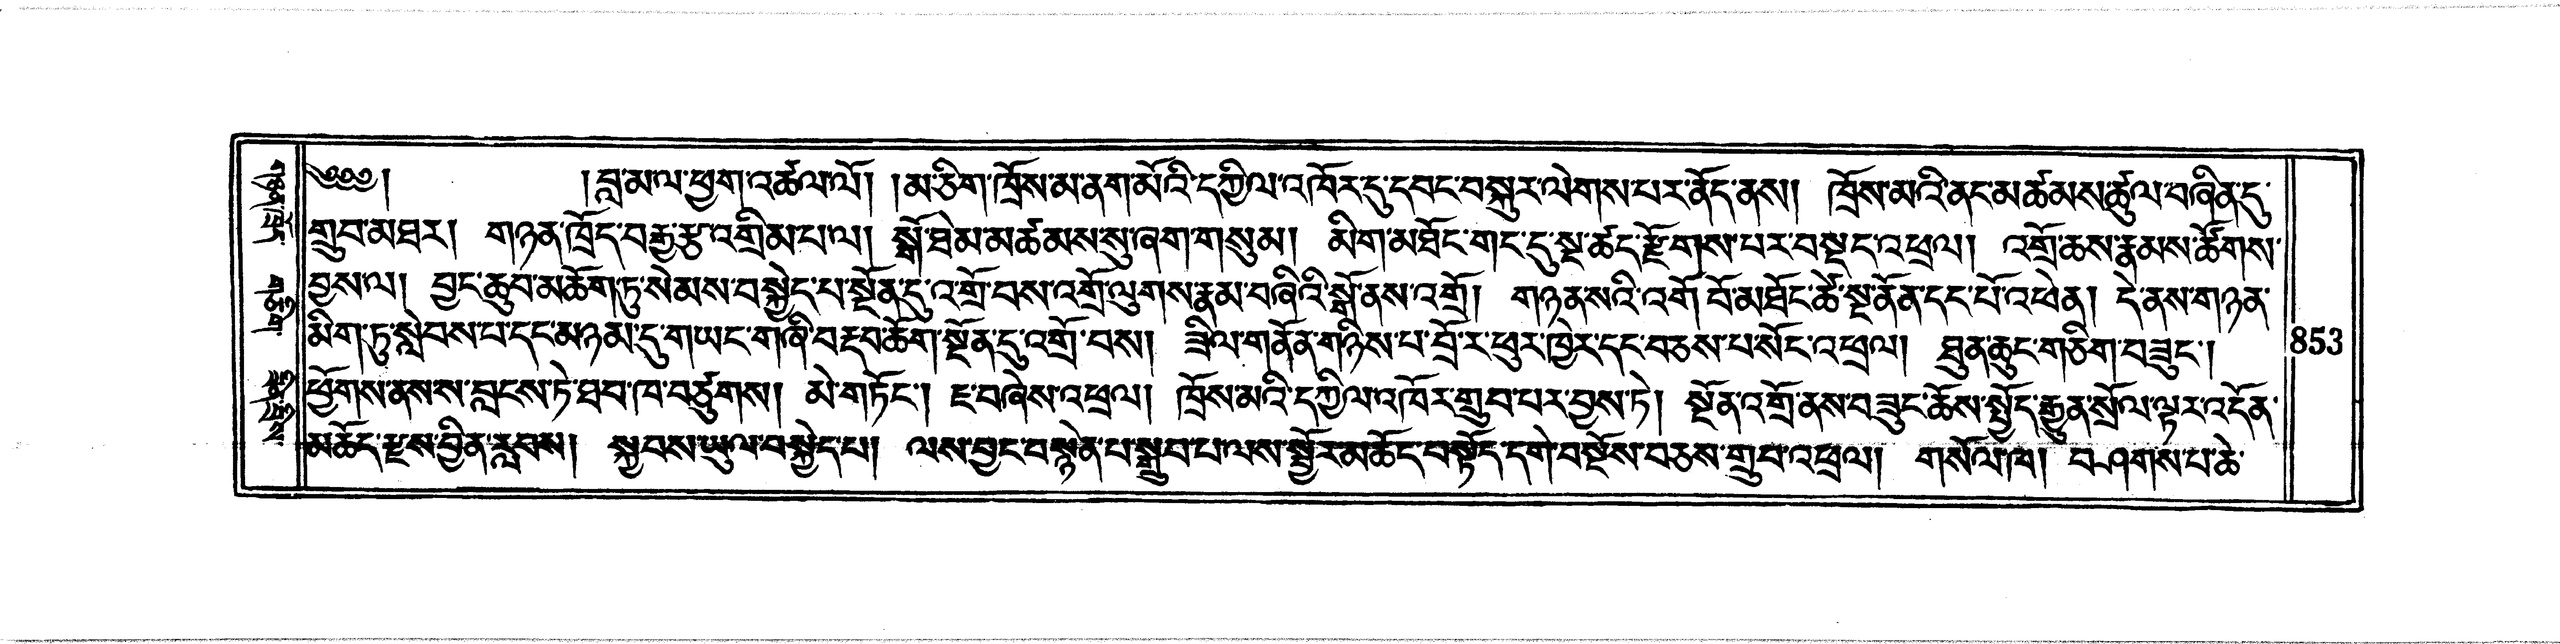 ༄༅༅། །བླ་མ་ལ་ཕྱག་འཚལ་ལོ། །མ་ཅིག་ཁྲོས་མ་ནག་མོའི་དཀྱིལ་འཁོར་དུ་དབང་བསྐུར་ལེགས་པར་ནོད་ནས། ཁྲོས་མའི་ནང་མཚམས་ཚུལ་བཞིན་དུ་
གྲུབ་མཐར། གཉན་ཁྲོད་བརྒྱ་རྩ་འགྲིམ་པ་ལ། སྒོ་ཐེམ་མཚམས་སུ་ཞག་གསུམ། མིག་མཐོང་གང་དུ་སྔ་ཚད་རྫོགས་པར་བསྡད་འཕྲལ། འགྲོ་ཆས་རྣམས་ཚོགས་
བྱས་ལ། བྱང་ཆུབ་མཆོག་ཏུ་སེམས་བསྐྱེད་པ་སྔོན་དུ་འགྲོ་བས་འགྲོ་ལུགས་རྣམ་བཞིའི་སྒོ་ནས་འགྲོ། གཉནསའི་འགོ་བོ་མཐོང་ཚེ་སྔ་ནོན་དང་པོ་འཕེན། དེ་ནས་གཉན་
མིག་ཏུ་སླེབས་པ་དང་མཉམ་དུ་གཡང་གཞི་བརྡབ་ཆོག་སྔོན་དུ་འགྲོ་བས། ཟིལ་གནོན་གཉིས་པ་བྲོ་ར་ཕུར་ཁྱེར་དང་བཅས་པ་སོང་འཕྲལ། ཐུན་ཆུང་གཅིག་བཟུང་།
ཕྱོགས་ནས་ས་བླངས་ཏེ་ཐབ་ཁ་བཙུགས། མེ་གཏོང་། ཇ་བཞེས་འཕྲལ། ཁྲོས་མའི་དཀྱིལ་འཁོར་གྲུབ་པར་བྱས་ཏེ། སྔོན་འགྲོ་ནས་བཟུང་ཆོས་སྤྱོད་རྒྱུན་སྲོལ་ལྟར་འདོན་
མཆོད་རྫས་བྱིན་རླབས། སྐྱབས་ཡུལ་བསྐྱེད་པ། ལས་བྱང་བསྙེན་པ་སྒྲུབ་པ་ལས་སྦྱོར་མཆོད་བསྟོད་དགེ་བསྔོས་བཅས་གྲུབ་འཕྲལ། གསོལ་ཁ། བཤགས་པ་ཆེ་
853